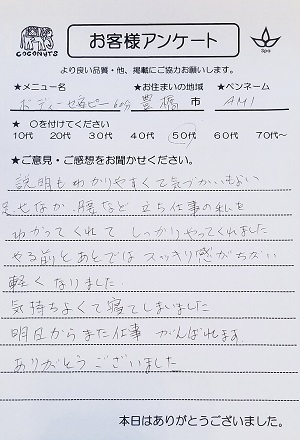 COCONUTS
お客様アンケート
Spa
より良い品質・他、掲載にご協力お願いします。
★メニュー名 ★お住まいの地域 ★ペンネーム
ボディーセラピー60分 豊橋 市 AMI
★ ○を付けてください
10代 20代 30代 40代 50代 60代 70代～
★ご意見・ご感想をお聞かせください。
説明もわかりやすくて気づかいもよい
足せなか、腰など 立ち仕事の私を
わかってくれて しっかりやってくれました
やる前と、あとでは スッキリ感がちがい
軽くなりました
気持ちよくて寝てしまいました
明日からまた仕事 がんばれます。
ありがとうございました
本日はありがとうございました。